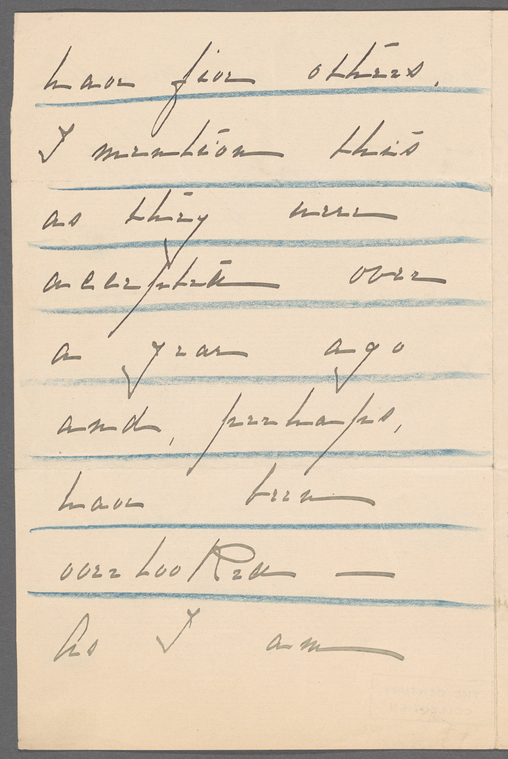 have five others.
I mention this
as they were
accepted over
a year ago
and, perhaps,
have been
overlooked —
As I am